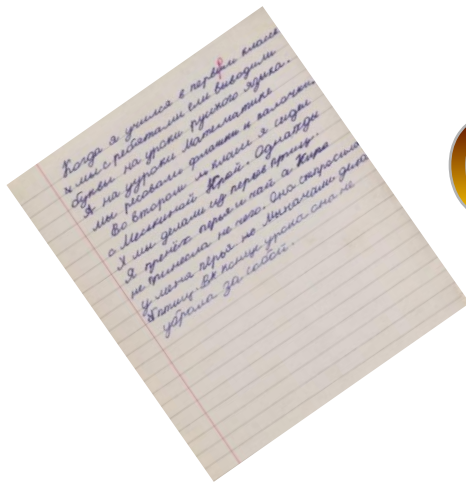 Когда я учился в первом классе
и мы с ребятами ели выводили
буквы на уроки русского языка.
А на уроки математике
мы рисовали флажки и палочки.
Во втором м классе я сидел
с Мескиной Кірой. Однажды
Х мы делали из перьев птицу.
Я принёс перья и кай а Кира
не принесла не чего. Она спросила
у меня перья не мы начали дела
птиц. Вк конце урока она не
убрала за собой.